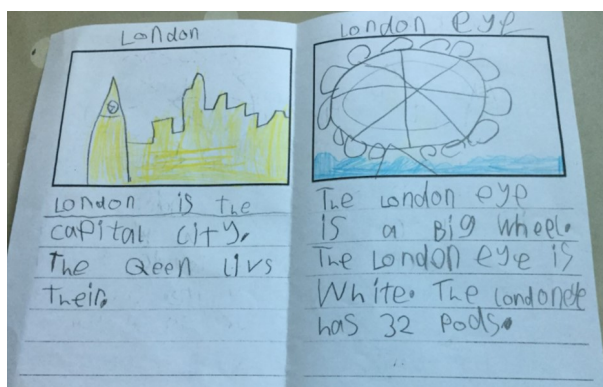 London
London is the
capital city.
The Qeen livs
their.
London eye
The London eye
is a Big wheel.
The London eye is
White. The londoneye
has 32 pods.